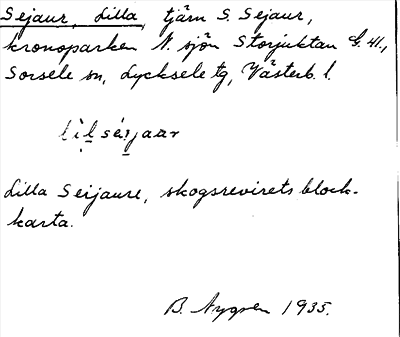 Sejaur, Lilla, tjärn S. Sejaur,
kronoparken N. sjön Storjuktan G. 41.,
Sorsele sn, Lycksele tg, Västerb. l.
lìlséjaar
Lilla Seijaure, skogsrevirets block-
karta.
B. Nygren 1935.